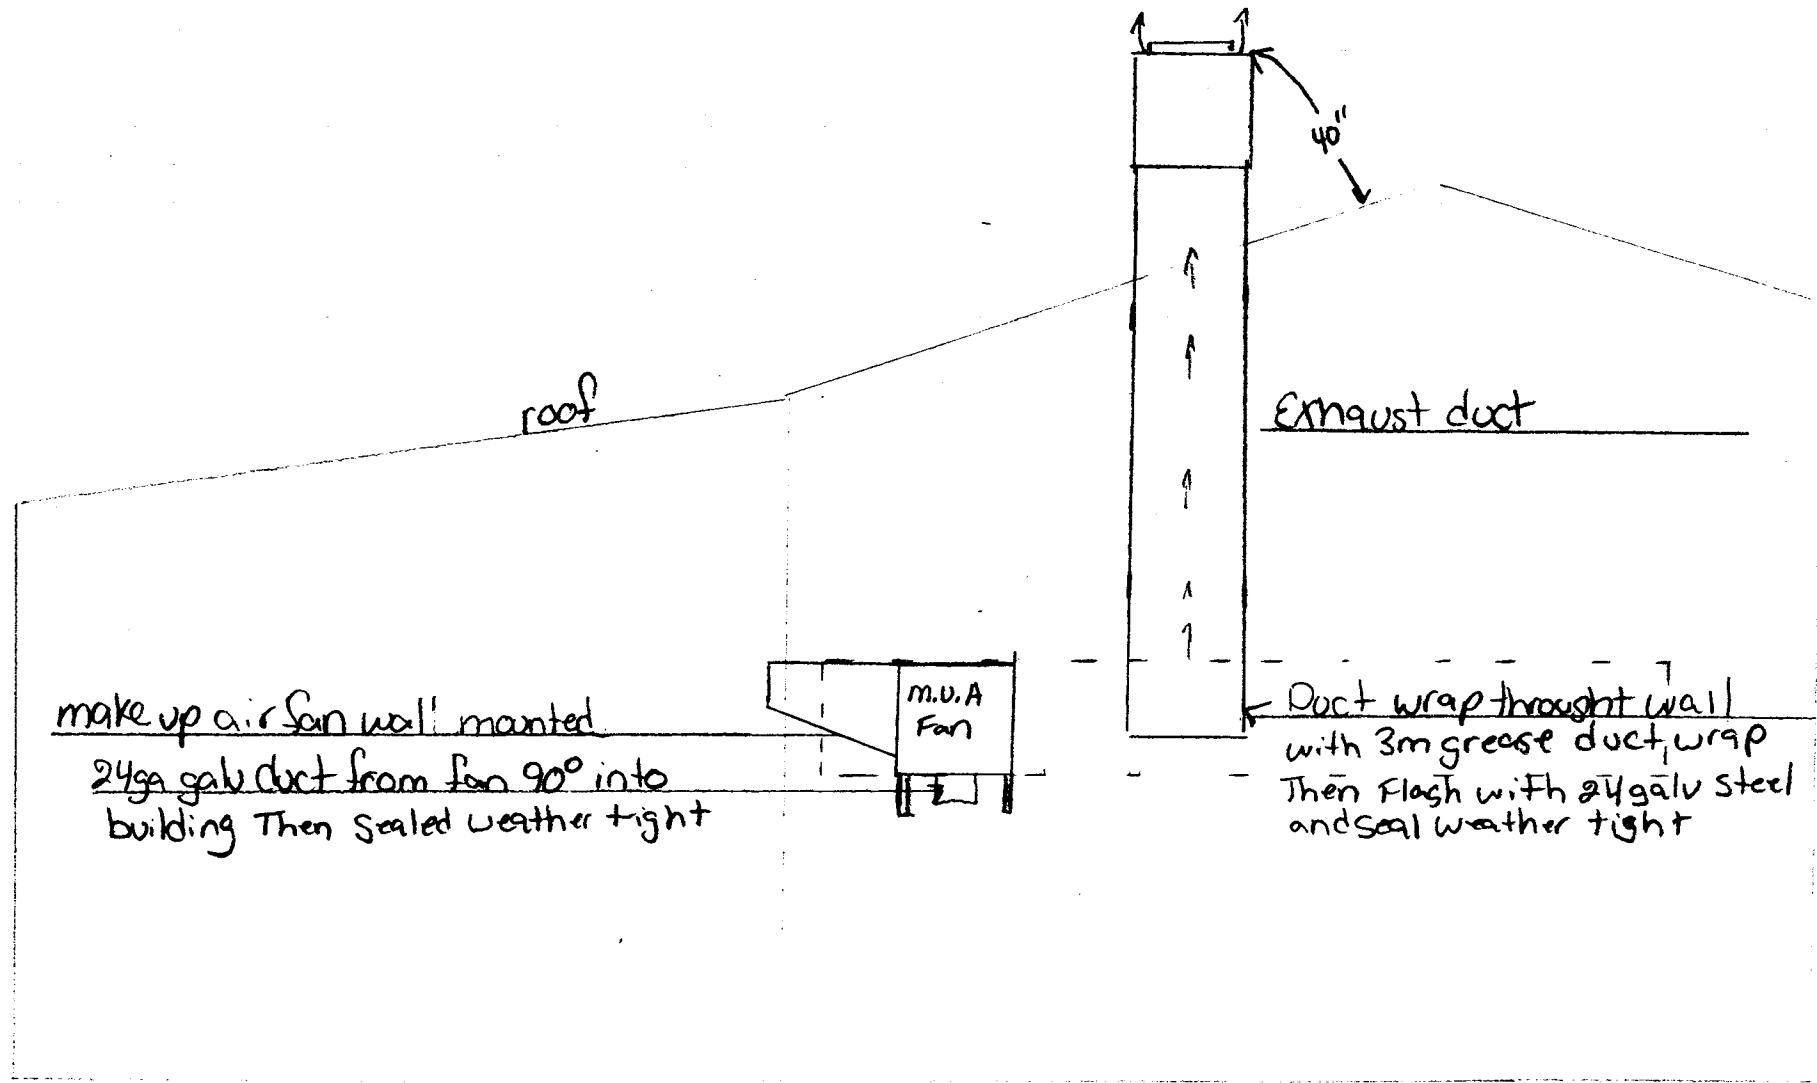 40"
roof
Exhaust duct
M.U.A
Fan
make up air fan wall mounted
24ga galv duct from fan 90° into
building Then Sealed weather tight
Duct wrap throught wall
with 3m grease duct wrap
Then Flash with 24galv Steel
and seal weather tight